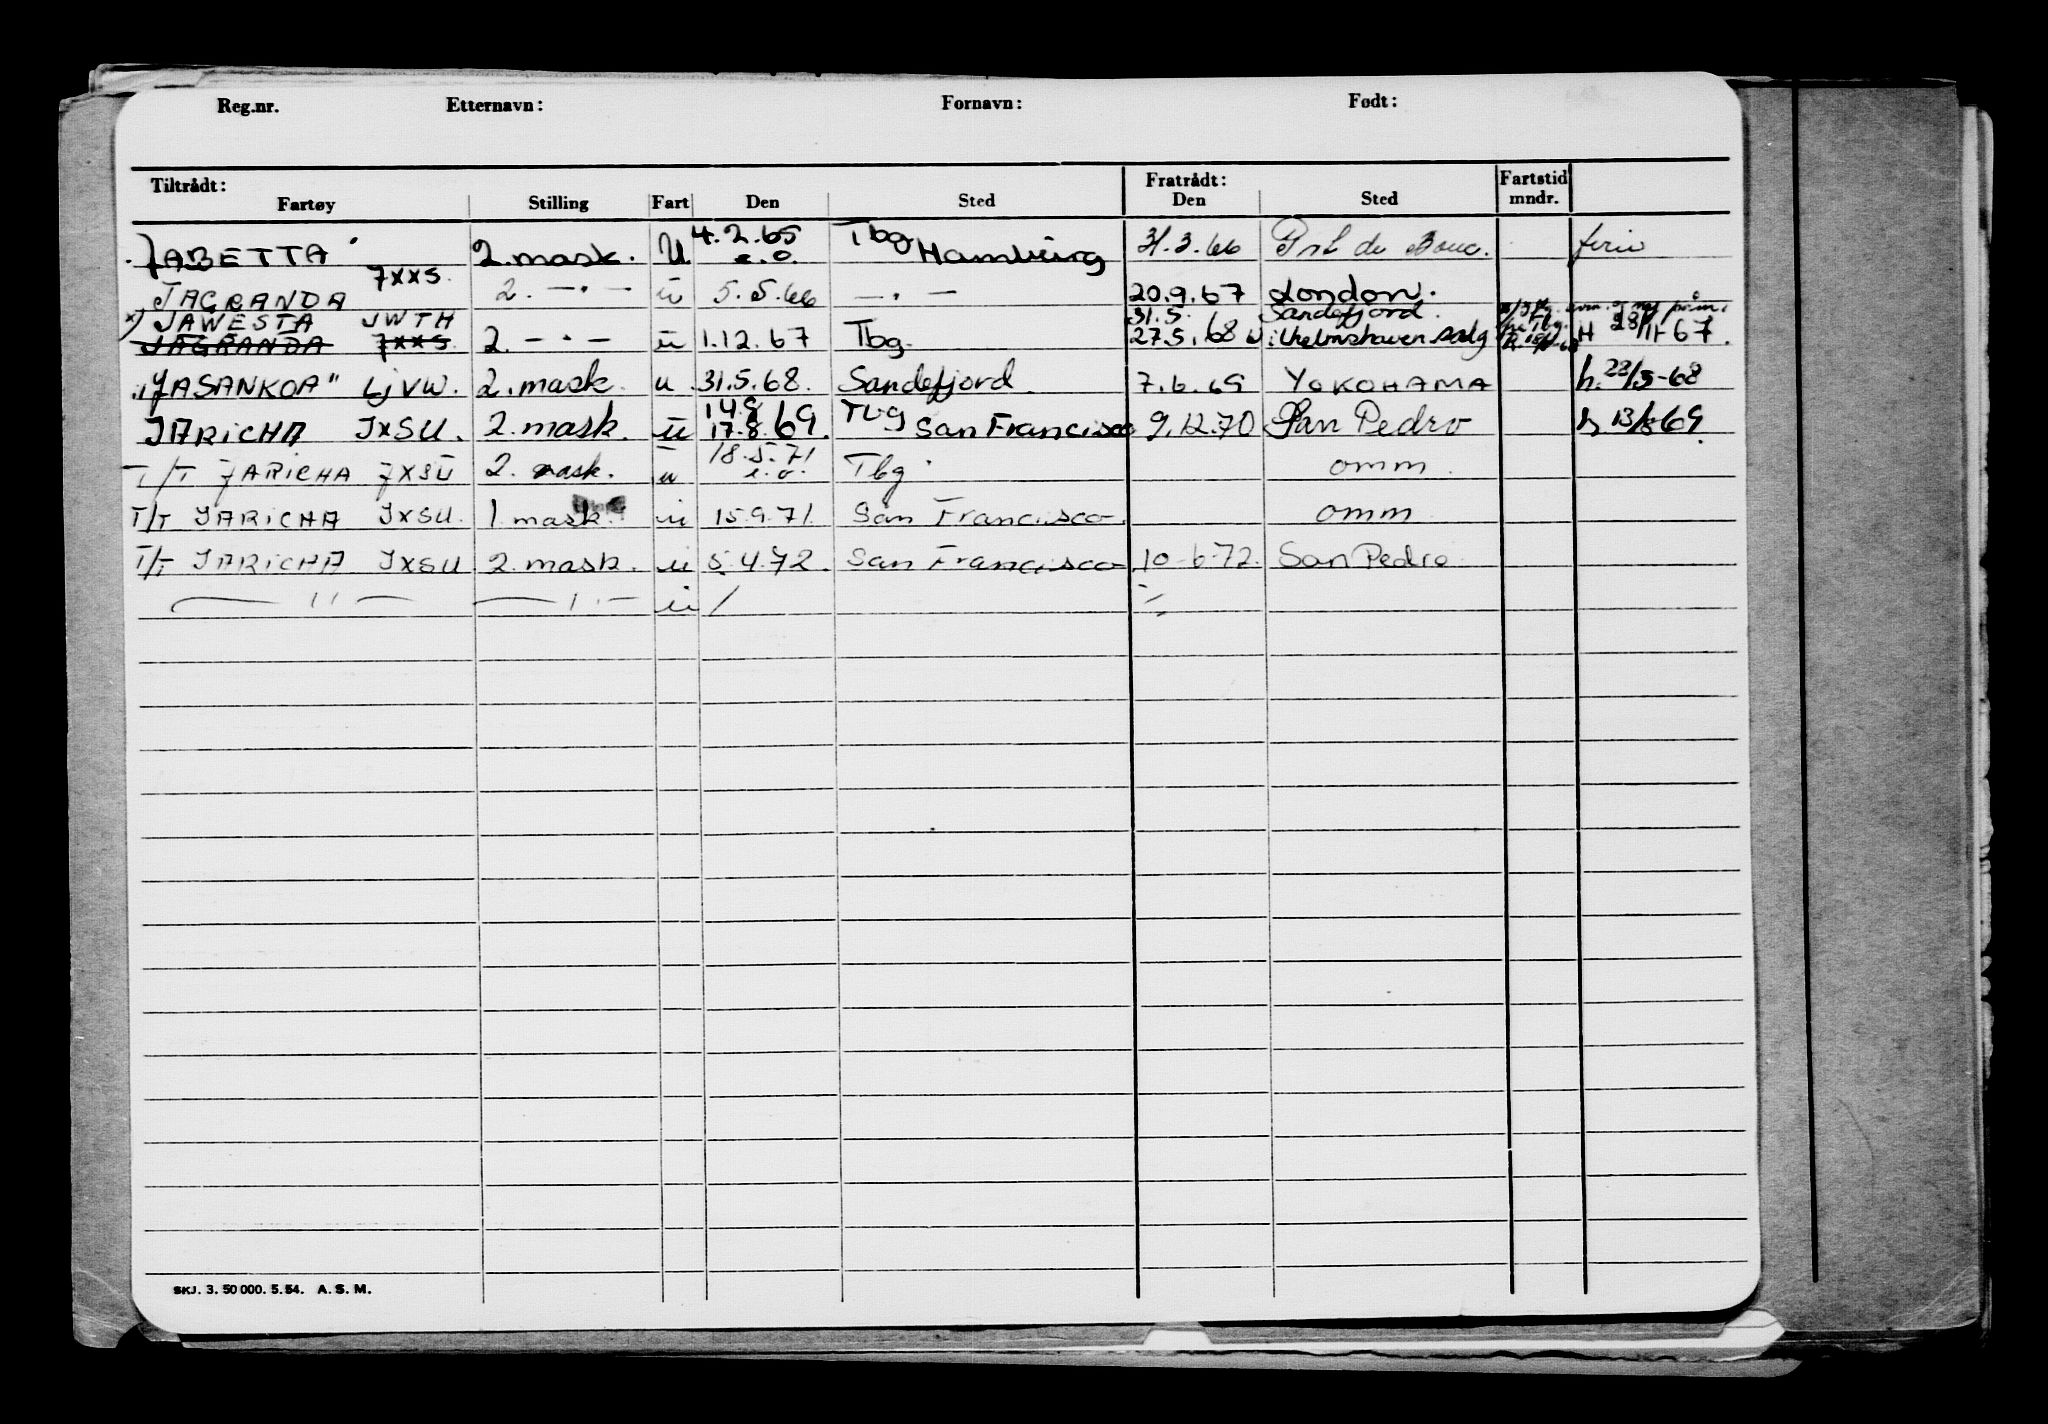 Reg.nr. Etternavn: Fornavn: Født:
Tiltrådt: Fratrådt: Fartstid
Fartøy Stilling Fart Den Sted Den Sted mndr.
JABETTA 2. mask. U 4.2.65 e.o. Tbg Hamburg 31.3.66 Port de Bouc. ferie
JAGRANDA JXXS. 2. — " — u 5.5.66 — " — 20.9.67 London.
x) JAWESTA JWTH 31.5. Sandefjord.
JAGRANDA JXXS. 2. — " — u 1.12.67 Tbg. 27.5.68 Wilhelmshaven salg H 28/11-67.
"JASANKOA" LJVW. 2. mask. u. 31.5.68. Sandefjord. 7.6.69 YOKOHAMA h. 22/5-68
JARICHA JXSU. 2. mask. u 14.8 17.8.69. Tbg San Francisco 9.12.70 San Pedro h 13/8 69.
T/T JARICHA JXSU 2. mask. u 18.5.71 e.o. Tbg omm.
T/T JARICHA JXSU. 1 mask. u 15.9.71. San Francisco omm
T/T JARICHA JXSU 2. mask. u 5.4.72. San Francisco 10-6-72. San Pedro
— " — — " — u /
SKJ. 3. 50 000. 5. 54. A. S. M.